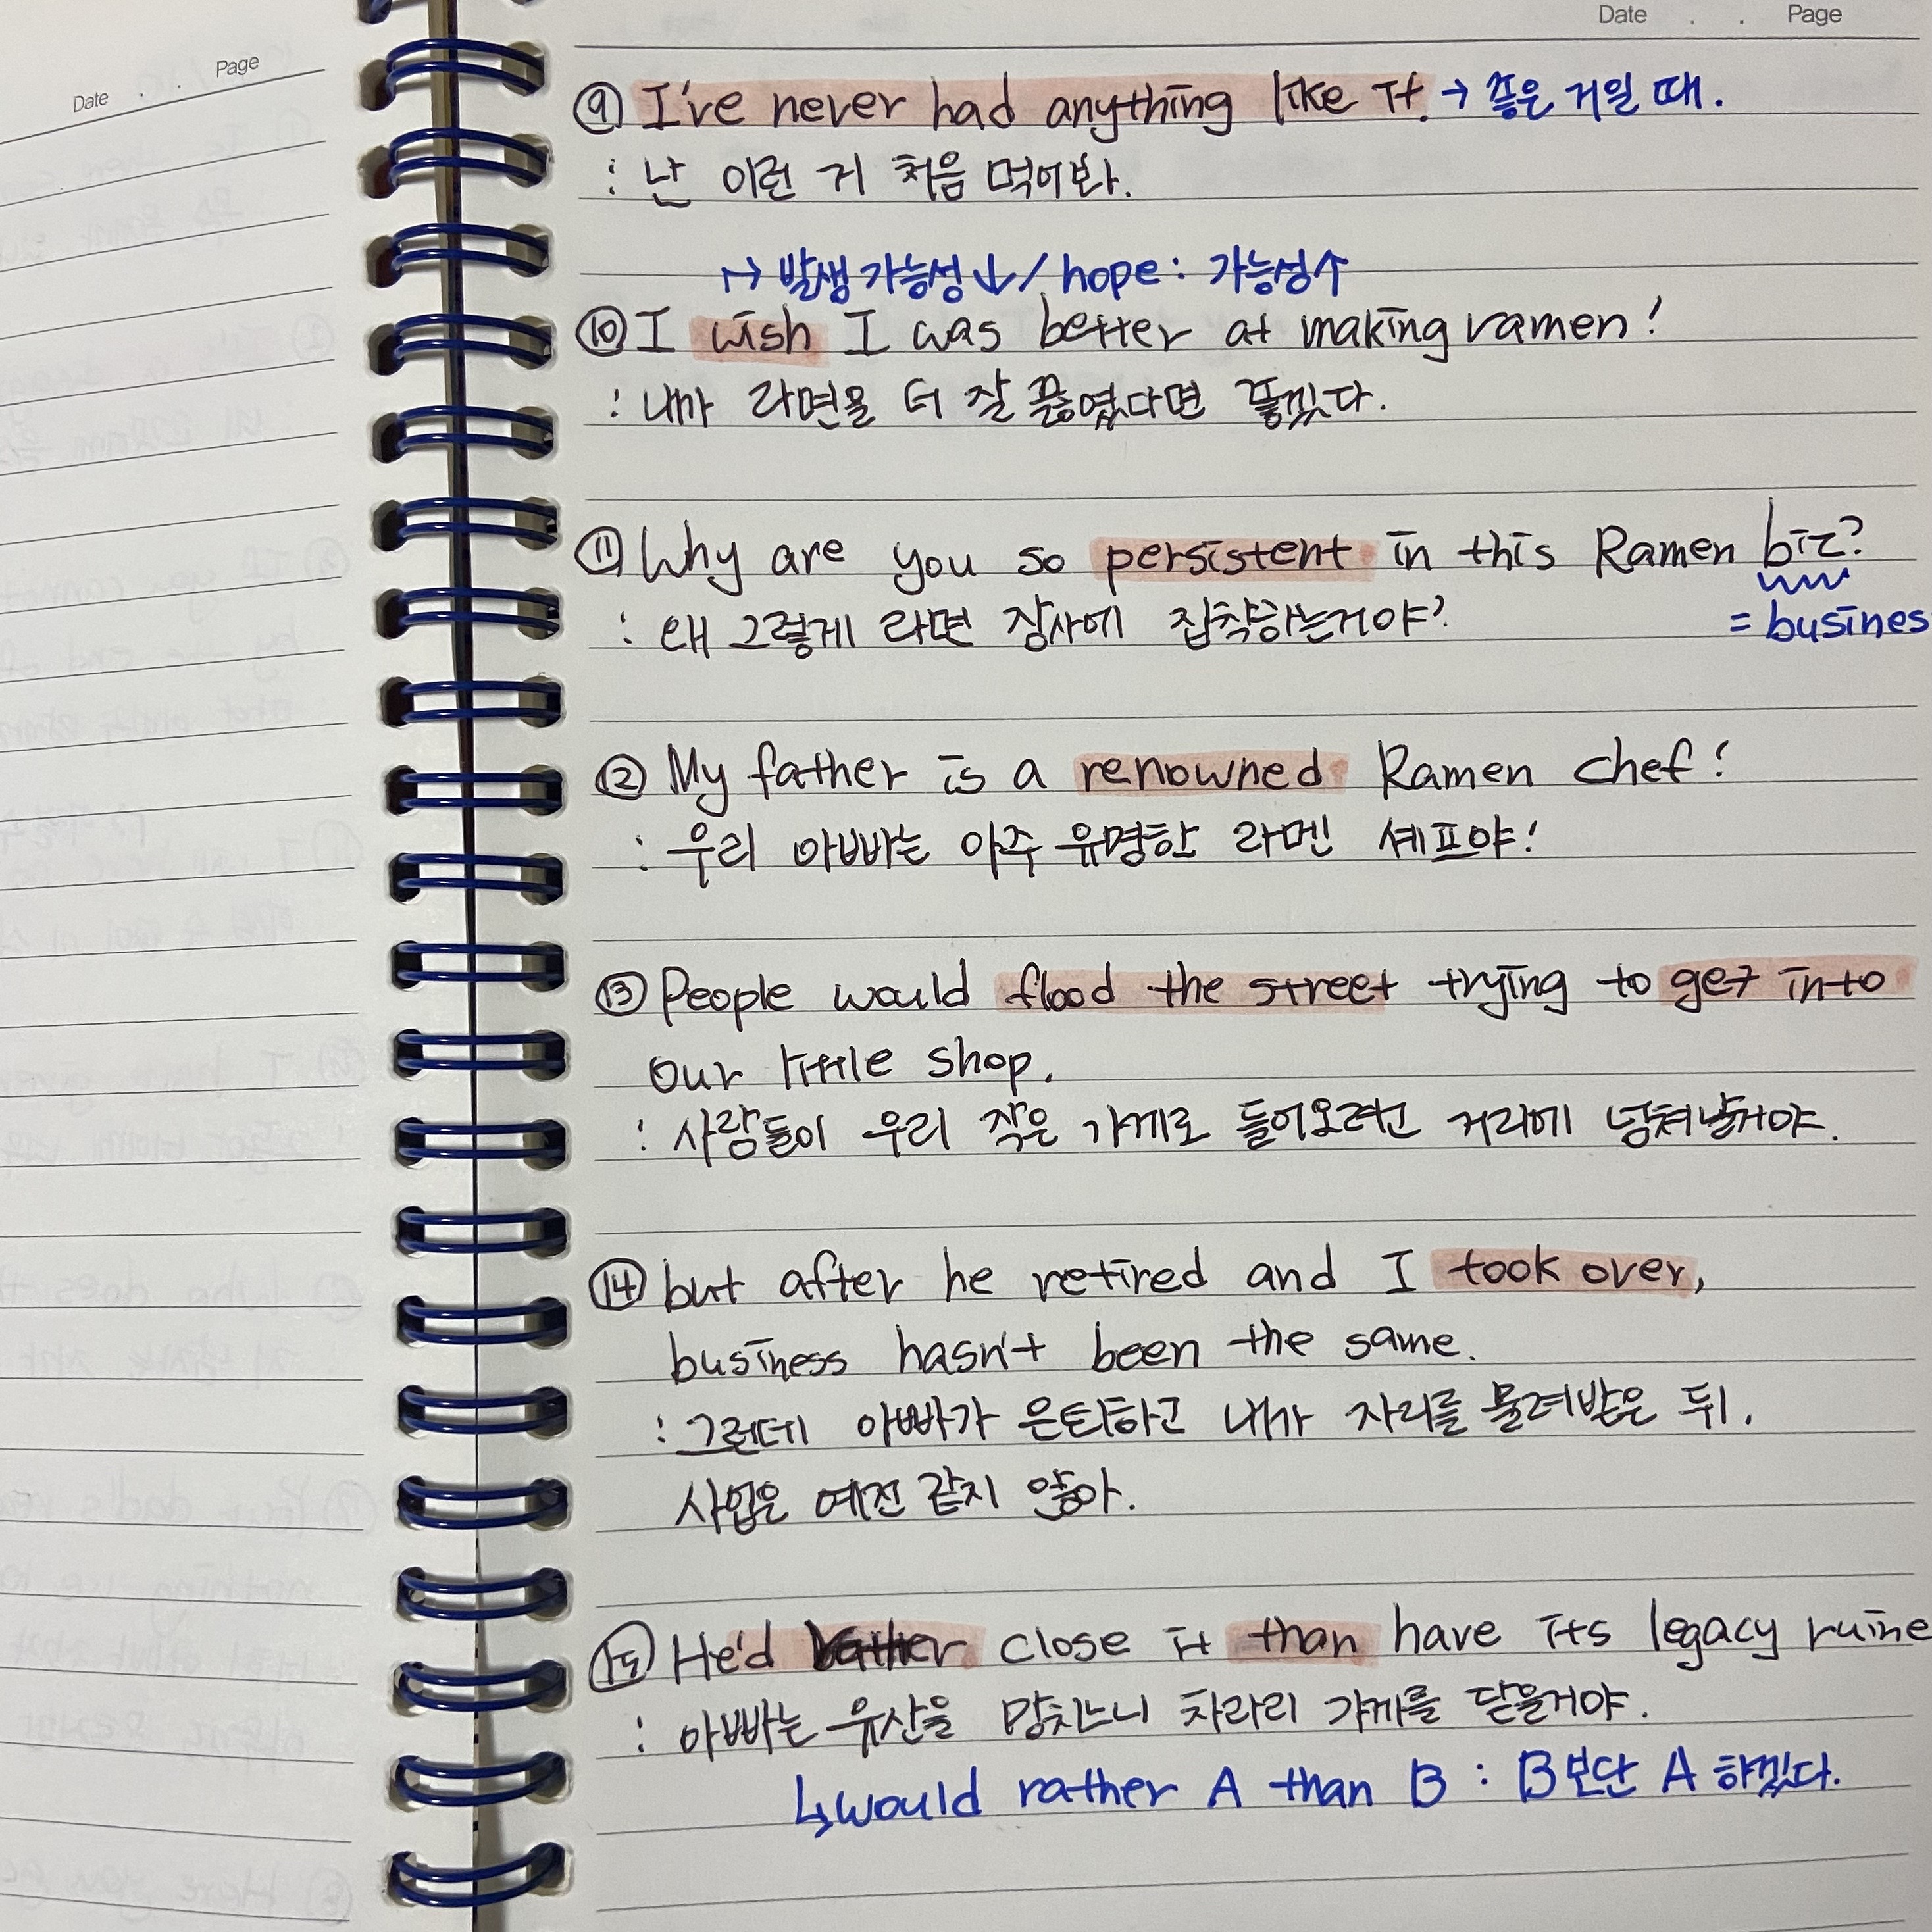 Date . . Page
Date . . Page
⑨ I've never had anything like it. → 좋은 거일 때.
: 난 이런 거 처음 먹어봐.
↦ 발생가능성↓ / hope : 가능성↑
⑩ I wish I was better at making ramen!
: 내가 라면을 더 잘 끓였다면 좋겠다.
⑪ Why are you so persistent in this Ramen biz?
: 왜 그렇게 라면 장사에 집착하는거야?
= busines
⑫ My father is a renowned Ramen chef!
: 우리 아빠는 아주 유명한 라멘 셰프야!
⑬ People would flood the street trying to get into
our little shop.
: 사람들이 우리 작은 가게로 들어오려고 거리에 넘쳐날거야.
⑭ but after he retired and I took over,
business hasn't been the same.
: 그런데 아빠가 은퇴하고 내가 자리를 물려받은 뒤.
사업은 예전 같지 않아.
⑮ He'd rather close it than have its legacy ruine
: 아빠는 유산을 망치느니 차라리 가게를 닫을거야.
↳ would rather A than B : B보단 A 하겠다.